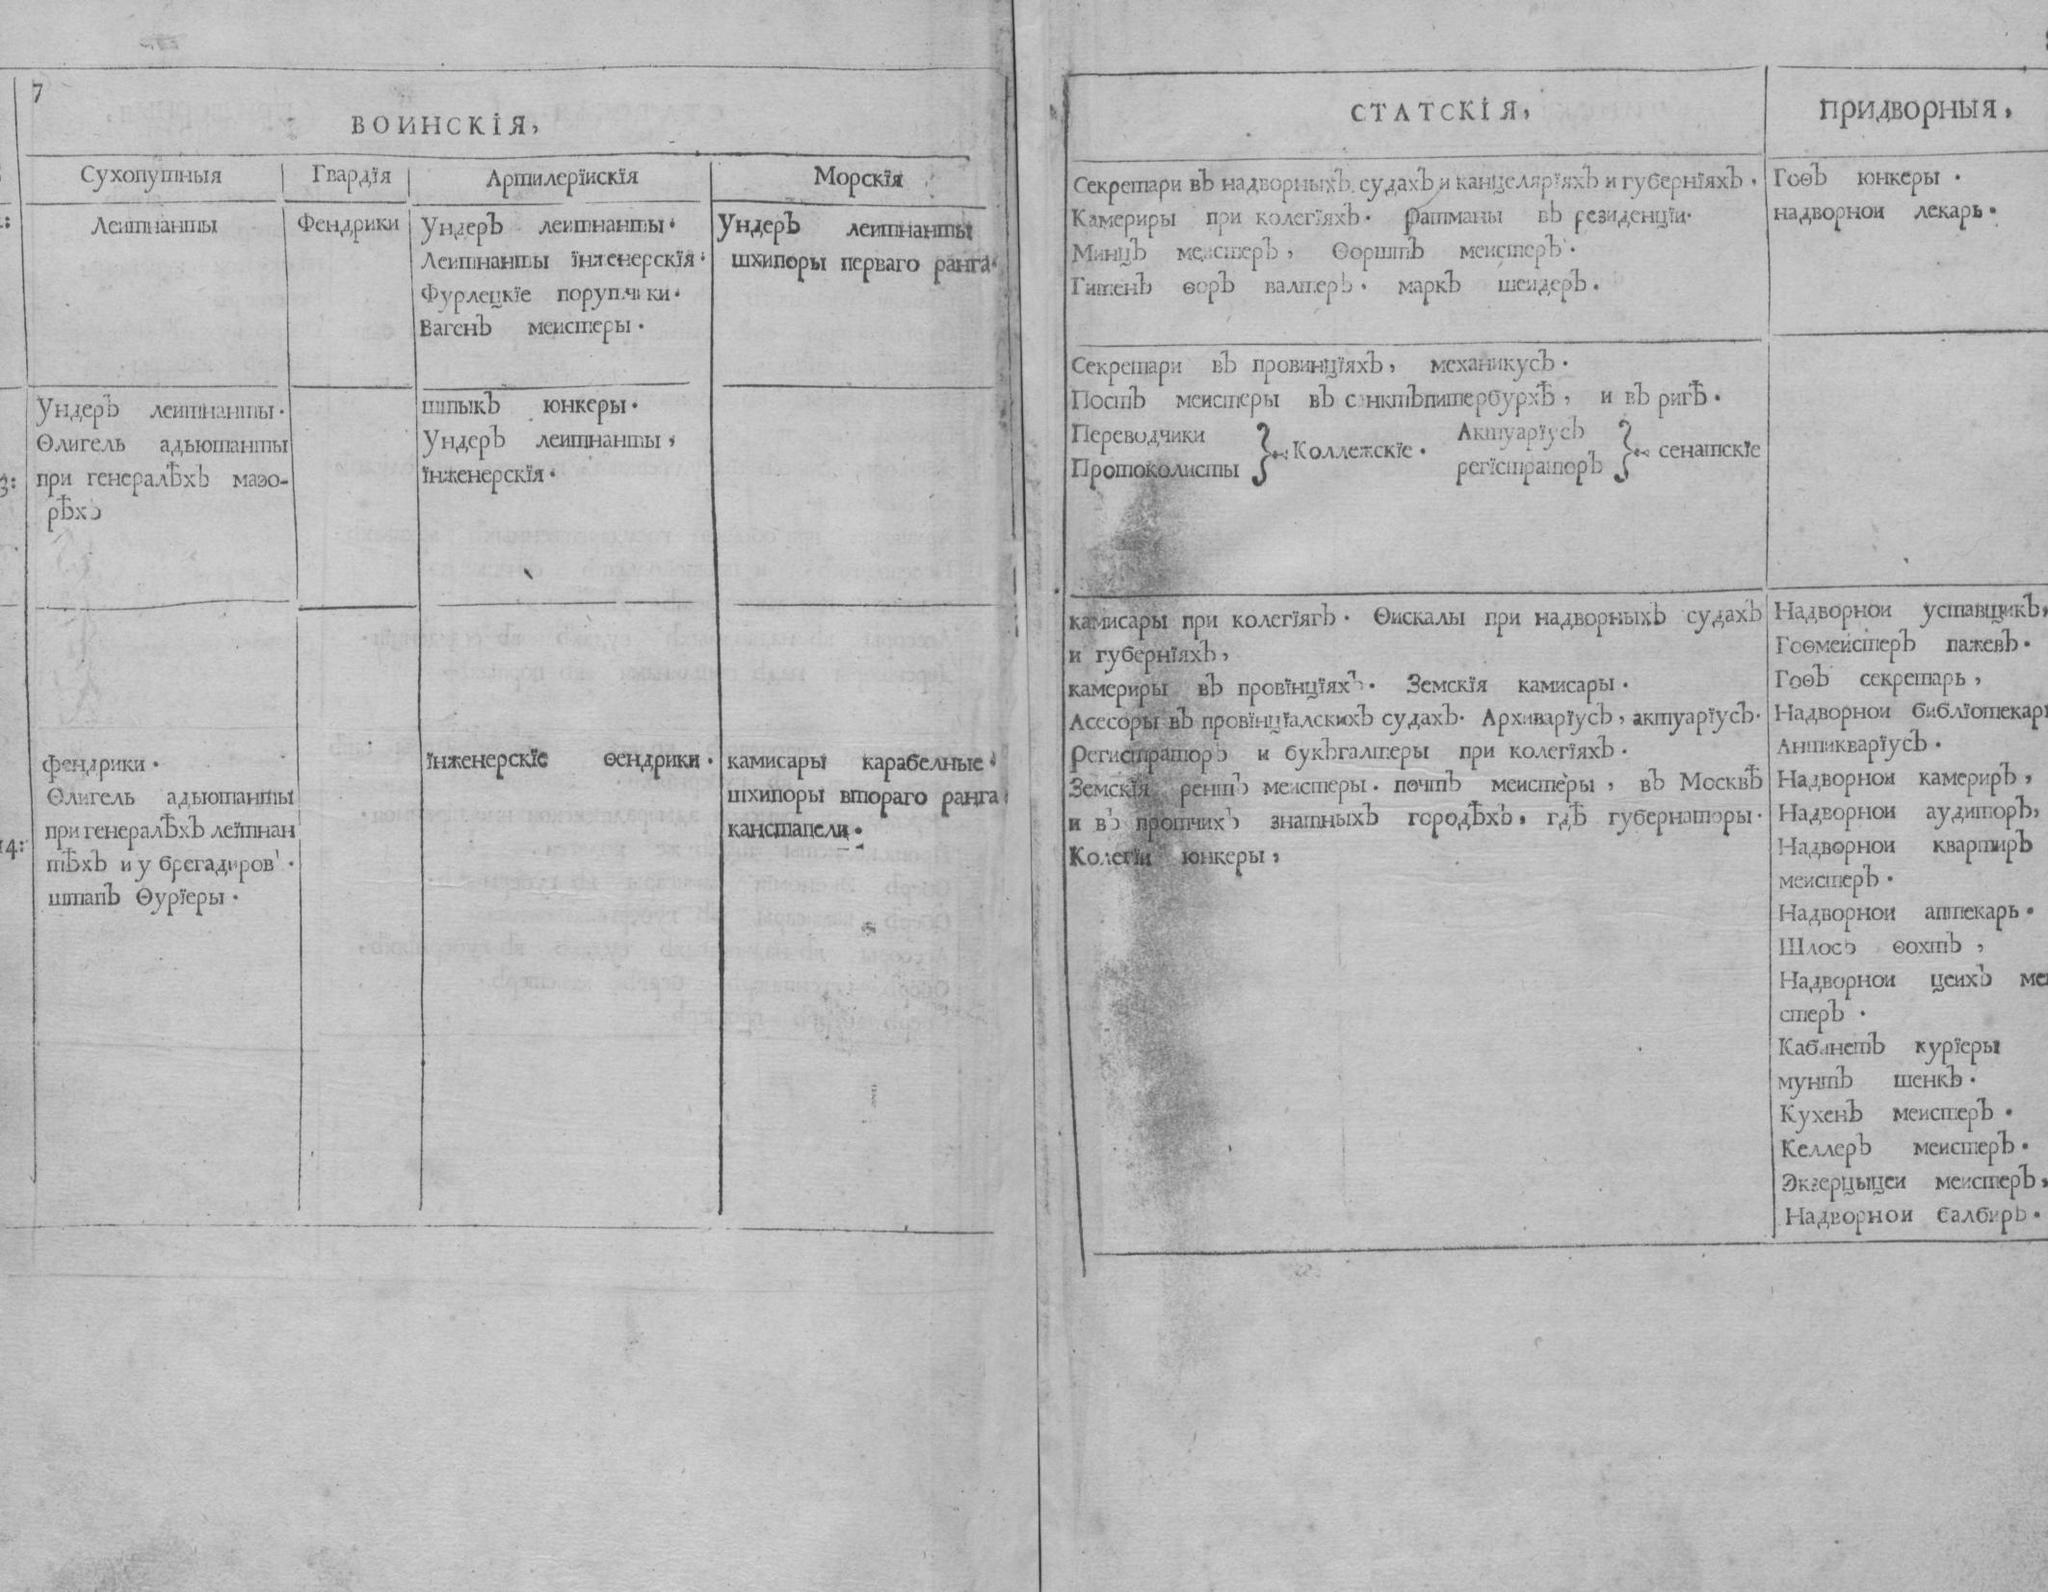 7
ВОИНСКІЯ,
Сухопутныя
Гвардїя
Артилерїискїя
Морскїя
Леитнанты
Фендрики
Ундеръ леитнанты.
Леитнанты їнженерскїя.
Фурлецкїе порутчики.
Вагенъ меистеры.
Ундеръ леитнанты
шхипоры перваго ранга.
3:
Ундеръ леитнанты.
Ѳлигель адьютанты
при генералѣхъ маэо-
рѣхъ
штыкъ юнкеры.
Ундеръ леитнанты,
їнженерскїя.
14:
фендрики.
Ѳлигель адьютанты
при генералѣхъ леїтнан
тѣхъ и у брегадировъ.
штапъ Ѳурїеры.
їнженерскїе ѳендрики.
камисары карабелные.
шхипоры втораго ранга.
канстапели.
СТАТСКІЯ,
Секретари въ надворныхъ судахъ и канцелярїяхъ и губернїяхъ.
Камериры при колегїяхъ. ратманы въ резиденцїи.
Минцъ меистеръ, Ѳорштъ меистеръ.
Гитенъ ѳоръ валтеръ. маркъ шеидеръ.
Секретари въ провинцїяхъ, механикусъ.
Постъ меистеры въ санктъпитербурхѣ, и въ ригѣ.
Переводчики
Протоколисты
Коллежскїе.
Актуарїусъ
регїстраторъ
сенатскїе
камисары при колегїягъ. Ѳискалы при надворныхъ судахъ
и губернїяхъ,
камериры въ провїнцїяхъ. Земскїя камисары.
Асесоры въ провїнцїалскихъ судахъ. Архиварїусъ, актуарїусъ.
Регистраторъ и букъгалтеры при колегїяхъ.
Земскїя рентъ меистеры. почтъ меистеры, въ Москвѣ
и въ протчихъ знатныхъ городѣхъ, гдѣ губернаторы.
Колегїи юнкеры,
ПРИДВОРНЫЯ,
Гоѳъ юнкеры.
надворнои лекарь.
Надворнои уставщикъ,
Гоѳмеистеръ пажевъ.
Гоѳъ секретарь,
Надворнои библїотекарь
Антикварїусъ.
Надворнои камериръ,
Надворнои аудиторъ,
Надворнои квартиръ
меистеръ.
Надворнои аптекарь.
Шлосъ ѳохтъ,
Надворнои цеихъ меи
стеръ.
Кабинетъ курїеры
мунтъ шенкъ.
Кухенъ меистеръ.
Келлеръ меистеръ.
Экзерцыцеи меистеръ,
Надворнои балбиръ.